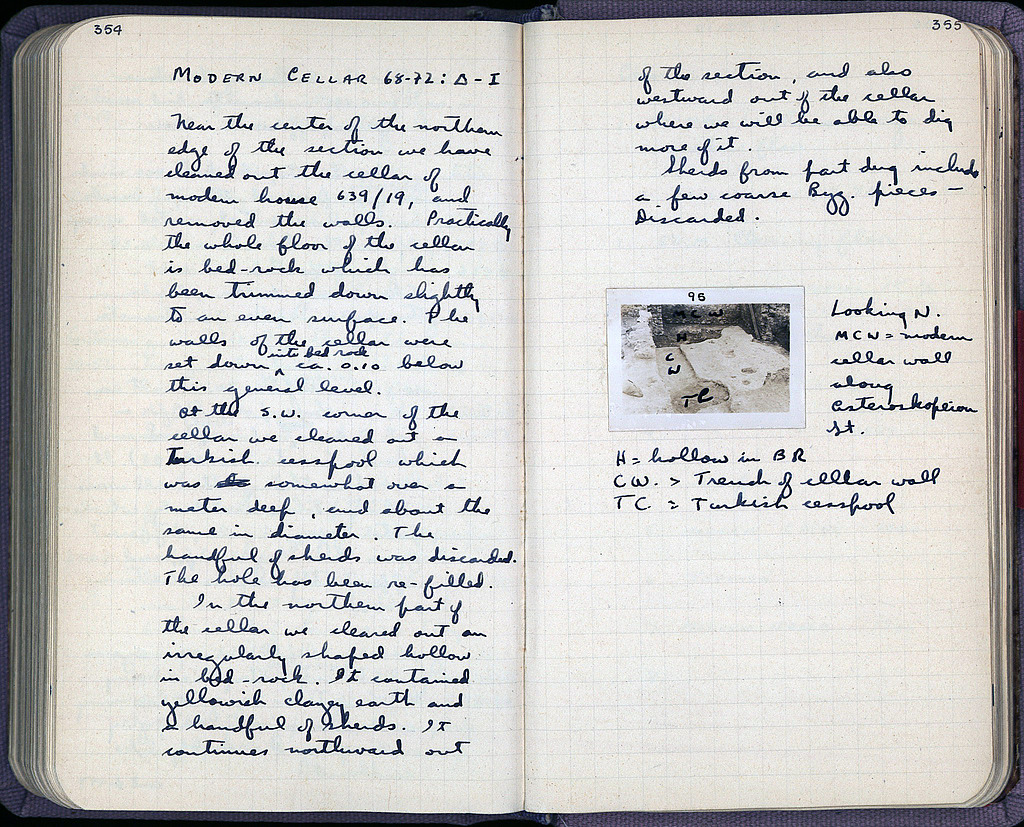 354
MODERN CELLAR 68-72: Δ-I
Near the center of the northern
edge of the section we have
cleaned out the cellar of
modern house 639/19, and
removed the walls. Practically
the whole floor of the cellar
is bed-rock which has
been trimmed down slightly
to an even surface. The
walls of the cellar were
set down into bed rock ca. 0.10 below
this general level.
At the S.W. corner of the
cellar we cleaned out a
Turkish cesspool which
was somewhat over a
meter deep, and about the
same in diameter. The
handful of sherds was discarded.
The hole has been re-filled.
In the northern part of
the cellar we cleared out an
irregularly shaped hollow
in bed-rock. It contained
yellowish clayey earth and
a handful of sherds. It
continues northward out
355
of the section, and also
westward out of the cellar
where we will be able to dig
more of it.
Sherds from part dug include
a few coarse Byz. pieces —
Discarded.
95
MCW
H
C
W
TC
Looking N.
MCW = modern
cellar wall
along
Asteroskopeion
St.
H = hollow in BR
CW. = Trench of cellar wall
TC. = Turkish cesspool